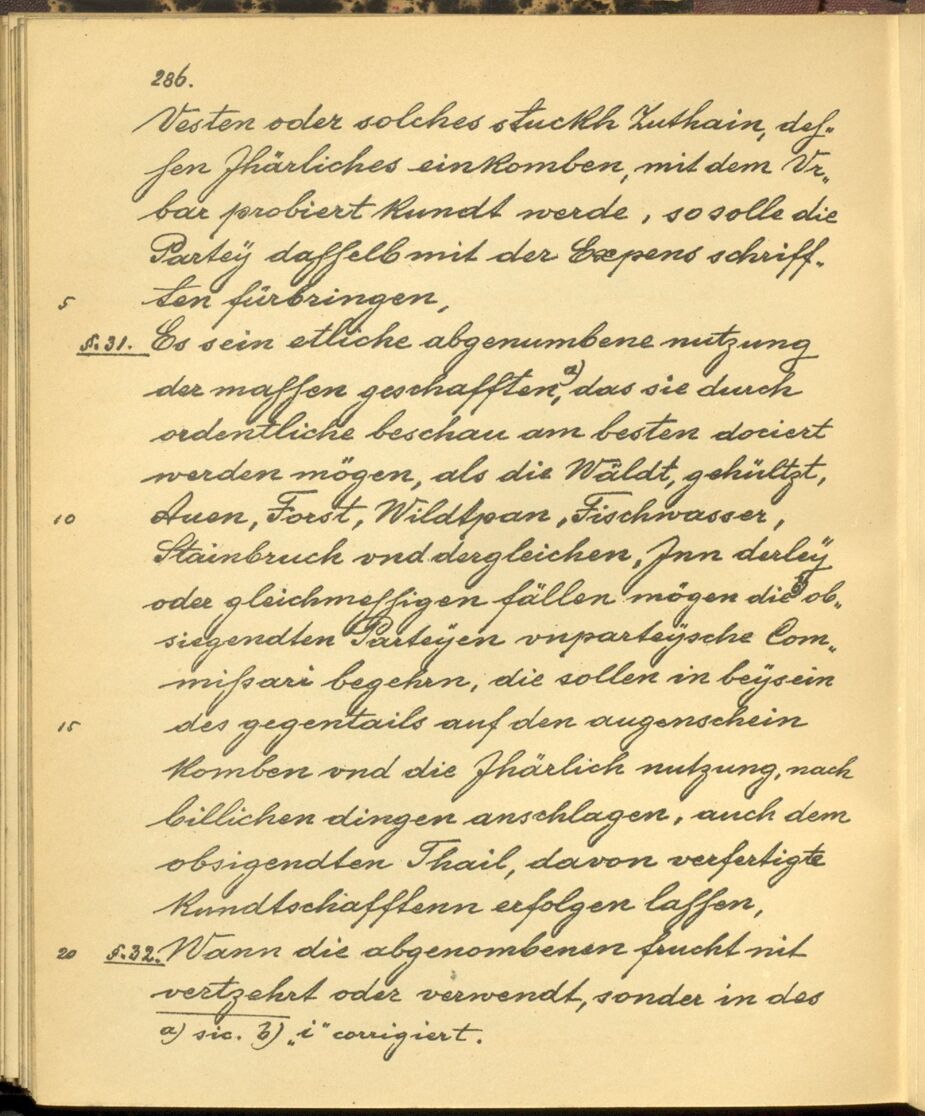 286.
Vesten oder solches stuckh Zuthain, des„
sen Jhärliches einkomben, mit dem Vr„
bar probiert kundt werde, so solle die
Parteÿ dasselb mit der Expens schriff„
5 ten fürbringen,
§. 31. Es sein etliche abgenumbene nutzung
der massen geschafften,a) das sie durch
ordentliche beschau am besten dociert
werden mögen, als die Wäldt, gehültzt,
10 Auen, Forst, Wildtpan, Fischwasser,
Stainbruch vnd dergleichen, Jnn derleÿ
oder gleichmessigen fällen mögen dieb) ob„
siegendten Parteÿen vnparteÿsche Com„
mißari begehrn, die sollen in beÿsein
15 des gegentails auf den augenschein
komben vnd die Jhärlich nutzung, nach
billichen dingen anschlagen, auch dem
obsigendten Thail, davon verfertigte
Kundtschafftenn erfolgen lassen,
20 §. 32. Wann die abgenombenen frucht nit
vertzehrt oder verwendt, sonder in des
a) sic. b) „i“ corrigiert.